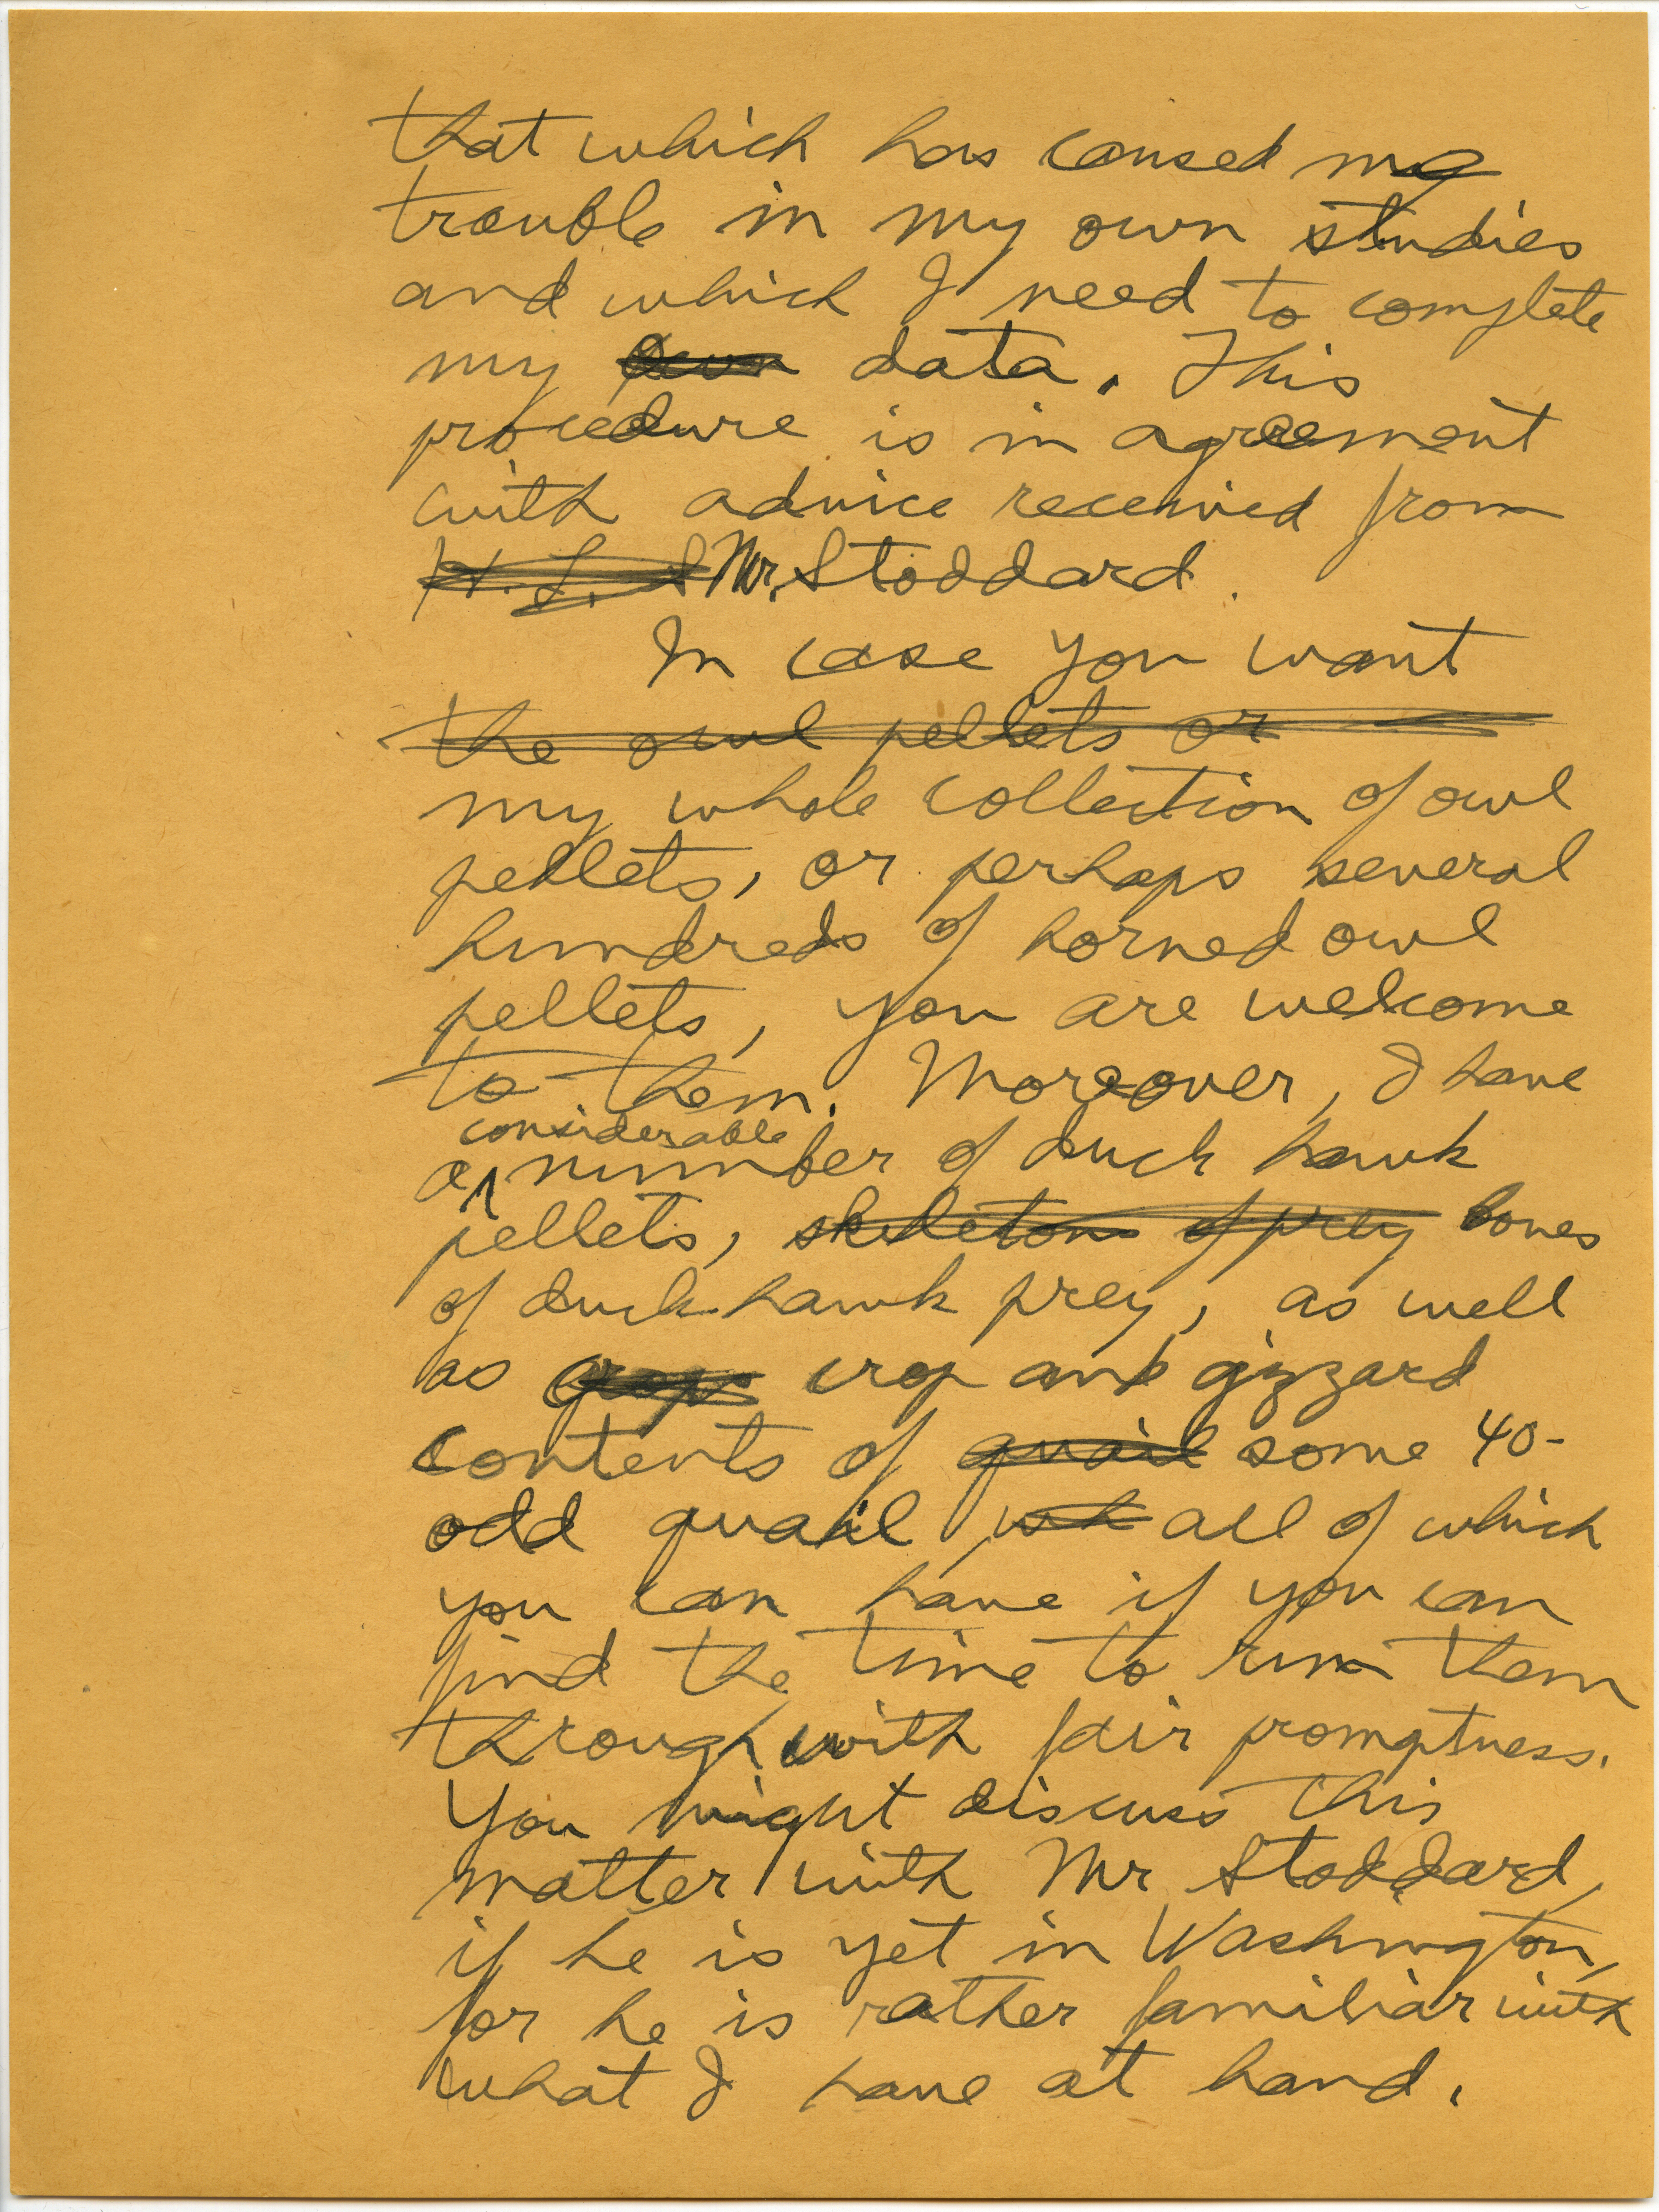 that which has caused me
trouble in my own studies
and which I need to complete
my own data. This
procedure is in agreement
with advice received from
H. L. S Mr. Stoddard.
In case you want
the owl pellets or
my whole collection of owl
pellets, or perhaps several
hundreds of horned owl
pellets, you are welcome
to them. Moreover, I have
considerable
a number of duck hawk
pellets, skeletons of prey bones
of duck hawk prey, as well
as crops crop and gizzard
contents of quail some 40-
odd quail wh all of which
you can have if you can
find the time to run them
through with fair promptness.
You might discuss this
matter with Mr Stoddard,
if he is yet in Washington,
for he is rather familiar with
what I have at hand.